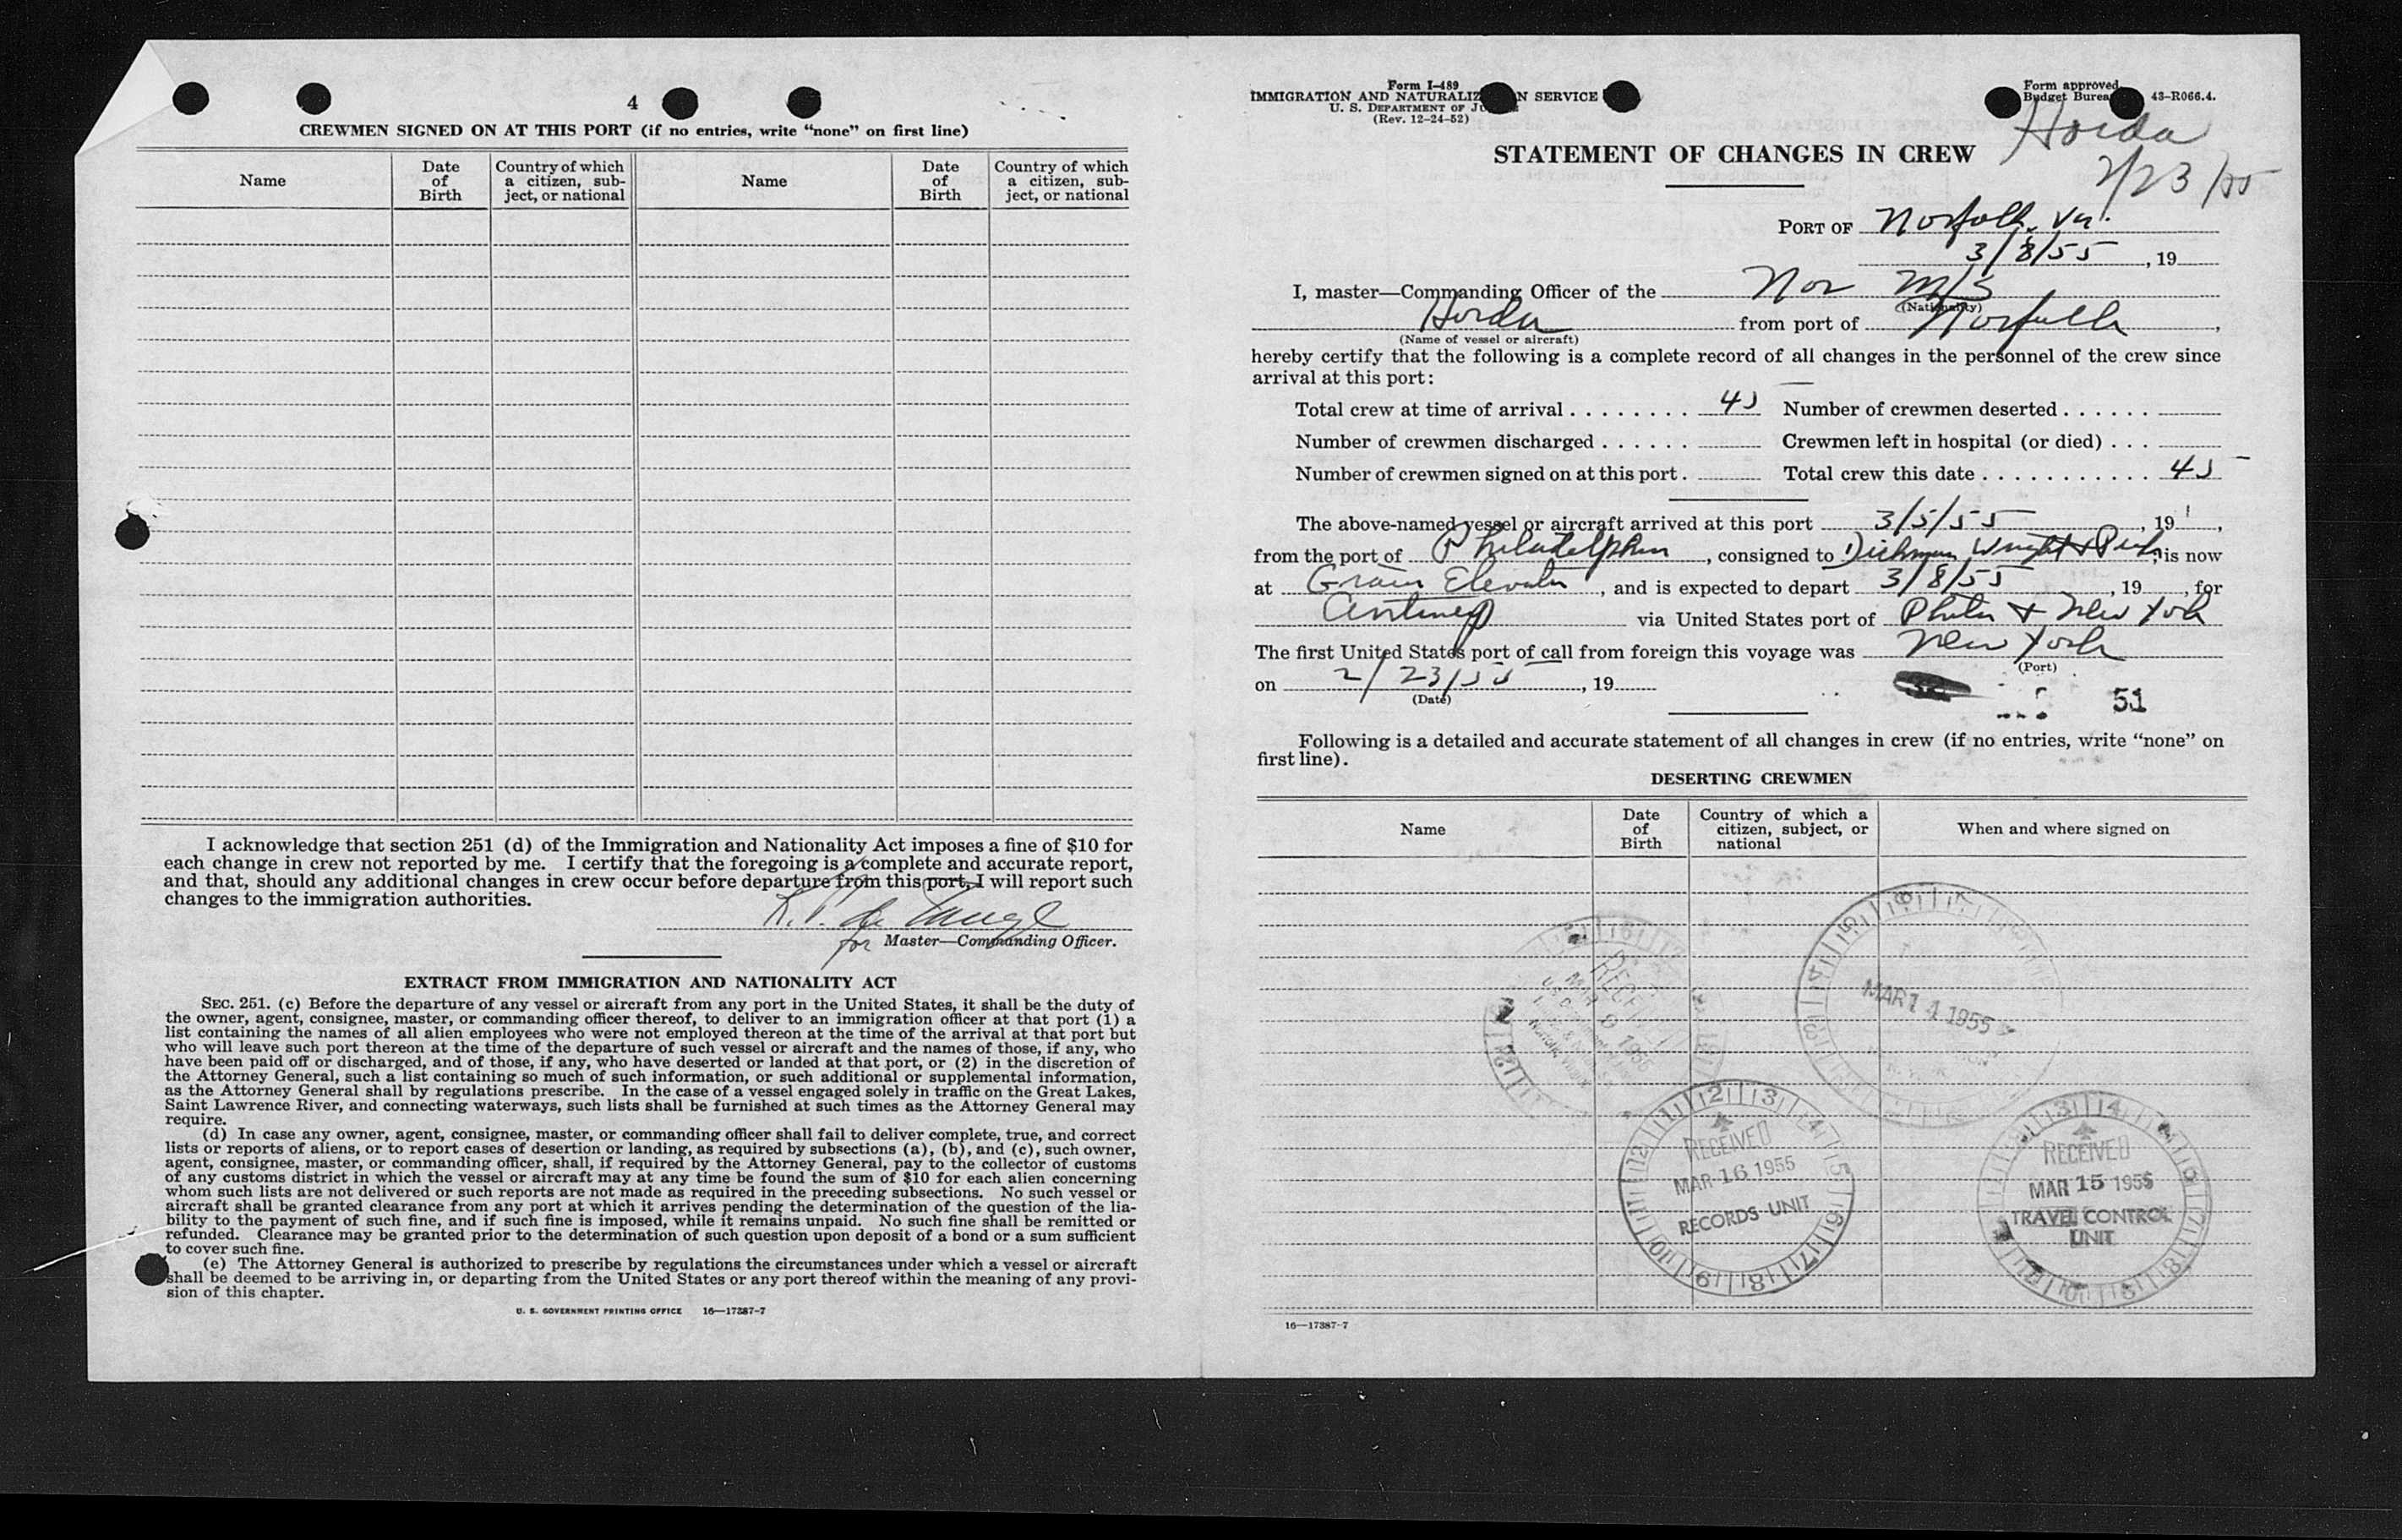 4
CREWMEN SIGNED ON AT THIS PORT (if no entries, write “none” on first line)
Name
Date of Birth
Country of which a citizen, sub-ject, or national
Name
Date of Birth
Country of which a citizen, sub-ject, or national
I acknowledge that section 251 (d) of the Immigration and Nationality Act imposes a fine of $10 for
each change in crew not reported by me. I certify that the foregoing is a complete and accurate report,
and that, should any additional changes in crew occur before departure from this port, I will report such
changes to the immigration authorities.
for Master—Commanding Officer.
EXTRACT FROM IMMIGRATION AND NATIONALITY ACT
SEC. 251. (c) Before the departure of any vessel or aircraft from any port in the United States, it shall be the duty of
the owner, agent, consignee, master, or commanding officer thereof, to deliver to an immigration officer at that port (1) a
list containing the names of all alien employees who were not employed thereon at the time of the arrival at that port but
who will leave such port thereon at the time of the departure of such vessel or aircraft and the names of those, if any, who
have been paid off or discharged, and of those, if any, who have deserted or landed at that port, or (2) in the discretion of
the Attorney General, such a list containing so much of such information, or such additional or supplemental information,
as the Attorney General shall by regulations prescribe. In the case of a vessel engaged solely in traffic on the Great Lakes,
Saint Lawrence River, and connecting waterways, such lists shall be furnished at such times as the Attorney General may
require.
(d) In case any owner, agent, consignee, master, or commanding officer shall fail to deliver complete, true, and correct
lists or reports of aliens, or to report cases of desertion or landing, as required by subsections (a), (b), and (c), such owner,
agent, consignee, master, or commanding officer, shall, if required by the Attorney General, pay to the collector of customs
of any customs district in which the vessel or aircraft may at any time be found the sum of $10 for each alien concerning
whom such lists are not delivered or such reports are not made as required in the preceding subsections. No such vessel or
aircraft shall be granted clearance from any port at which it arrives pending the determination of the question of the lia-
bility to the payment of such fine, and if such fine is imposed, while it remains unpaid. No such fine shall be remitted or
refunded. Clearance may be granted prior to the determination of such question upon deposit of a bond or a sum sufficient
to cover such fine.
(e) The Attorney General is authorized to prescribe by regulations the circumstances under which a vessel or aircraft
shall be deemed to be arriving in, or departing from the United States or any port thereof within the meaning of any provi-
sion of this chapter.
U. S. GOVERNMENT PRINTING OFFICE 16—17387-7
Form I-489
IMMIGRATION AND SERVICE
U. S. DEPARTMENT OF
(Rev. 12-24-52)
Form approved
Budget 43-R066.4.
Horda
2/23/55
STATEMENT OF CHANGES IN CREW
PORT OF Norfolk, Va.
3/8/55, 19
I, master—Commanding Officer of the Nor M/S
(Nationality)
Horda from port of Norfolk,
(Name of vessel or aircraft)
hereby certify that the following is a complete record of all changes in the personnel of the crew since
arrival at this port:
Total crew at time of arrival . . . . . . . . 45 Number of crewmen deserted . . . . . .
Number of crewmen discharged . . . . . . Crewmen left in hospital (or died) . . .
Number of crewmen signed on at this port . Total crew this date . . . . . . . . . . . 45
The above-named vessel or aircraft arrived at this port 3/5/55, 19,
from the port of Philadelphia, consigned to Dichman Wright & Pugh, is now
at Grain Elevator, and is expected to depart 3/8/55, 19, for
Antwerp via United States port of Phila & New York
The first United States port of call from foreign this voyage was New York
(Port)
on 2/23/55, 19
(Date)
51
Following is a detailed and accurate statement of all changes in crew (if no entries, write “none” on
first line).
DESERTING CREWMEN
Name
Date of Birth
Country of which a citizen, subject, or national
When and where signed on
MAR 14 1955
RECEIVED
MAR 16 1955
RECORDS UNIT
RECEIVED
MAR 15 1955
TRAVEL CONTROL
UNIT
16—17387-7